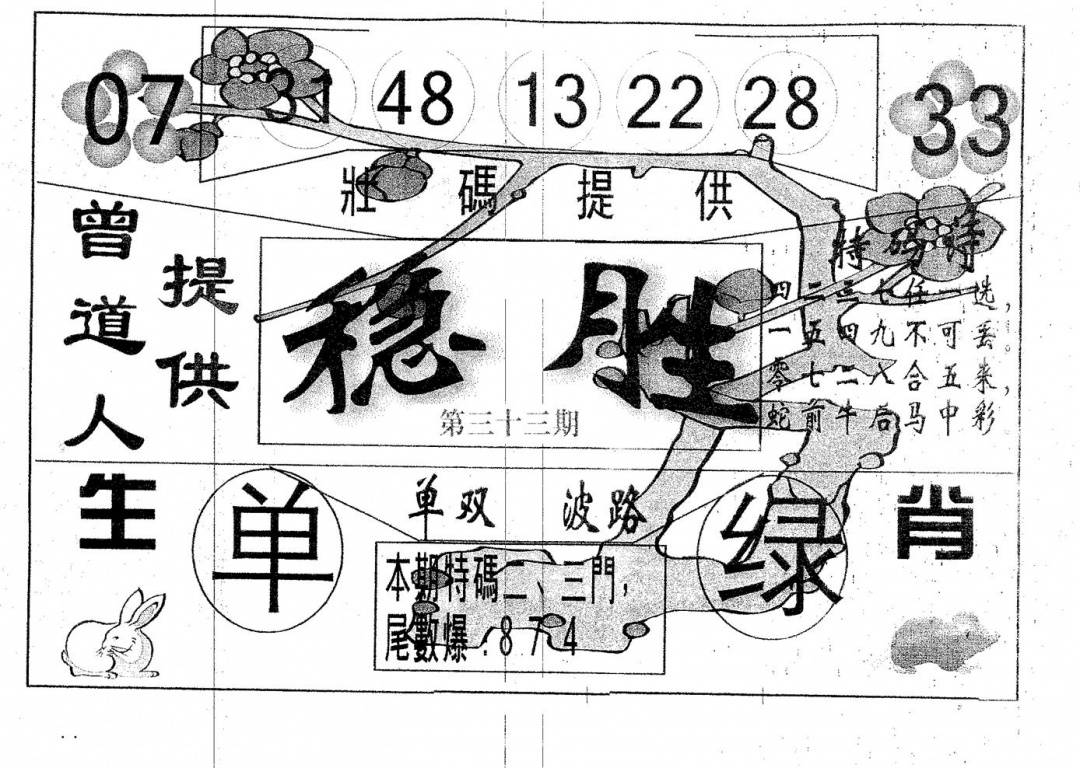 07 31 48 13 22 28 33
壯碼提供
曾道人
提供
稳胜
第三十三期
特码诗
四二三七任一选，
一五四九不可丢。
零七二八合五来，
蛇前牛后马中彩
生肖
单双 波路
单
绿
本期特碼二、三門，
尾數爆：874